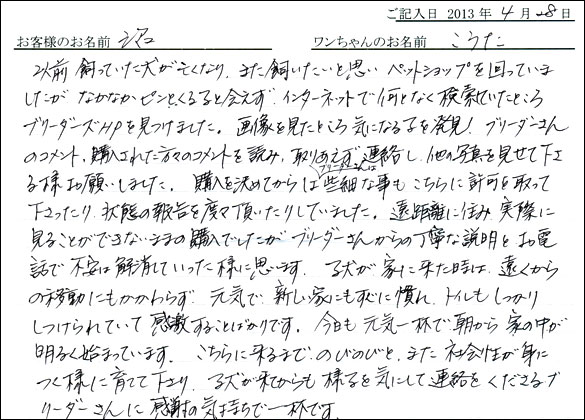 ご記入日 2013年 4月 28日
お客様のお名前 沼 ワンちゃんのお名前 こうた
以前 飼っていた犬が亡くなり、また飼いたいと思い ペットショップを回っていま
したが なかなかピンとくる子と会えず、インターネットで何となく検索していたところ
ブリーダーズHPを見つけました。画像を見たところ気になる子を発見! ブリーダーさん
のコメント、購入された方々のコメントを読み、取りあえず連絡し、他の写真を見せて下さ
る様お願いしました。購入を決めてからはブリーダーさんは些細な事もこちらに許可を取って
下さったり、状態の報告を度々頂いたりしていました。遠距離に住み 実際に
見ることができないままの購入でしたが ブリーダーさんからの丁寧な説明とお電
話で 不安は解消していった様に思います。子犬が家に来た時は、遠くから
の移動にもかかわらず 元気で、新しい家にもすぐに慣れ、トイレもしっかり
しつけられていて 感激することばかりです。今日も元気一杯で朝から家の中が
明るく始まっています。こちらに来るまで のびのびと、また社会性が身に
つく様に育てて下さり、子犬が来てからも様子を気にして連絡をくださるブ
リーダーさんに感謝の気持ちで一杯です。